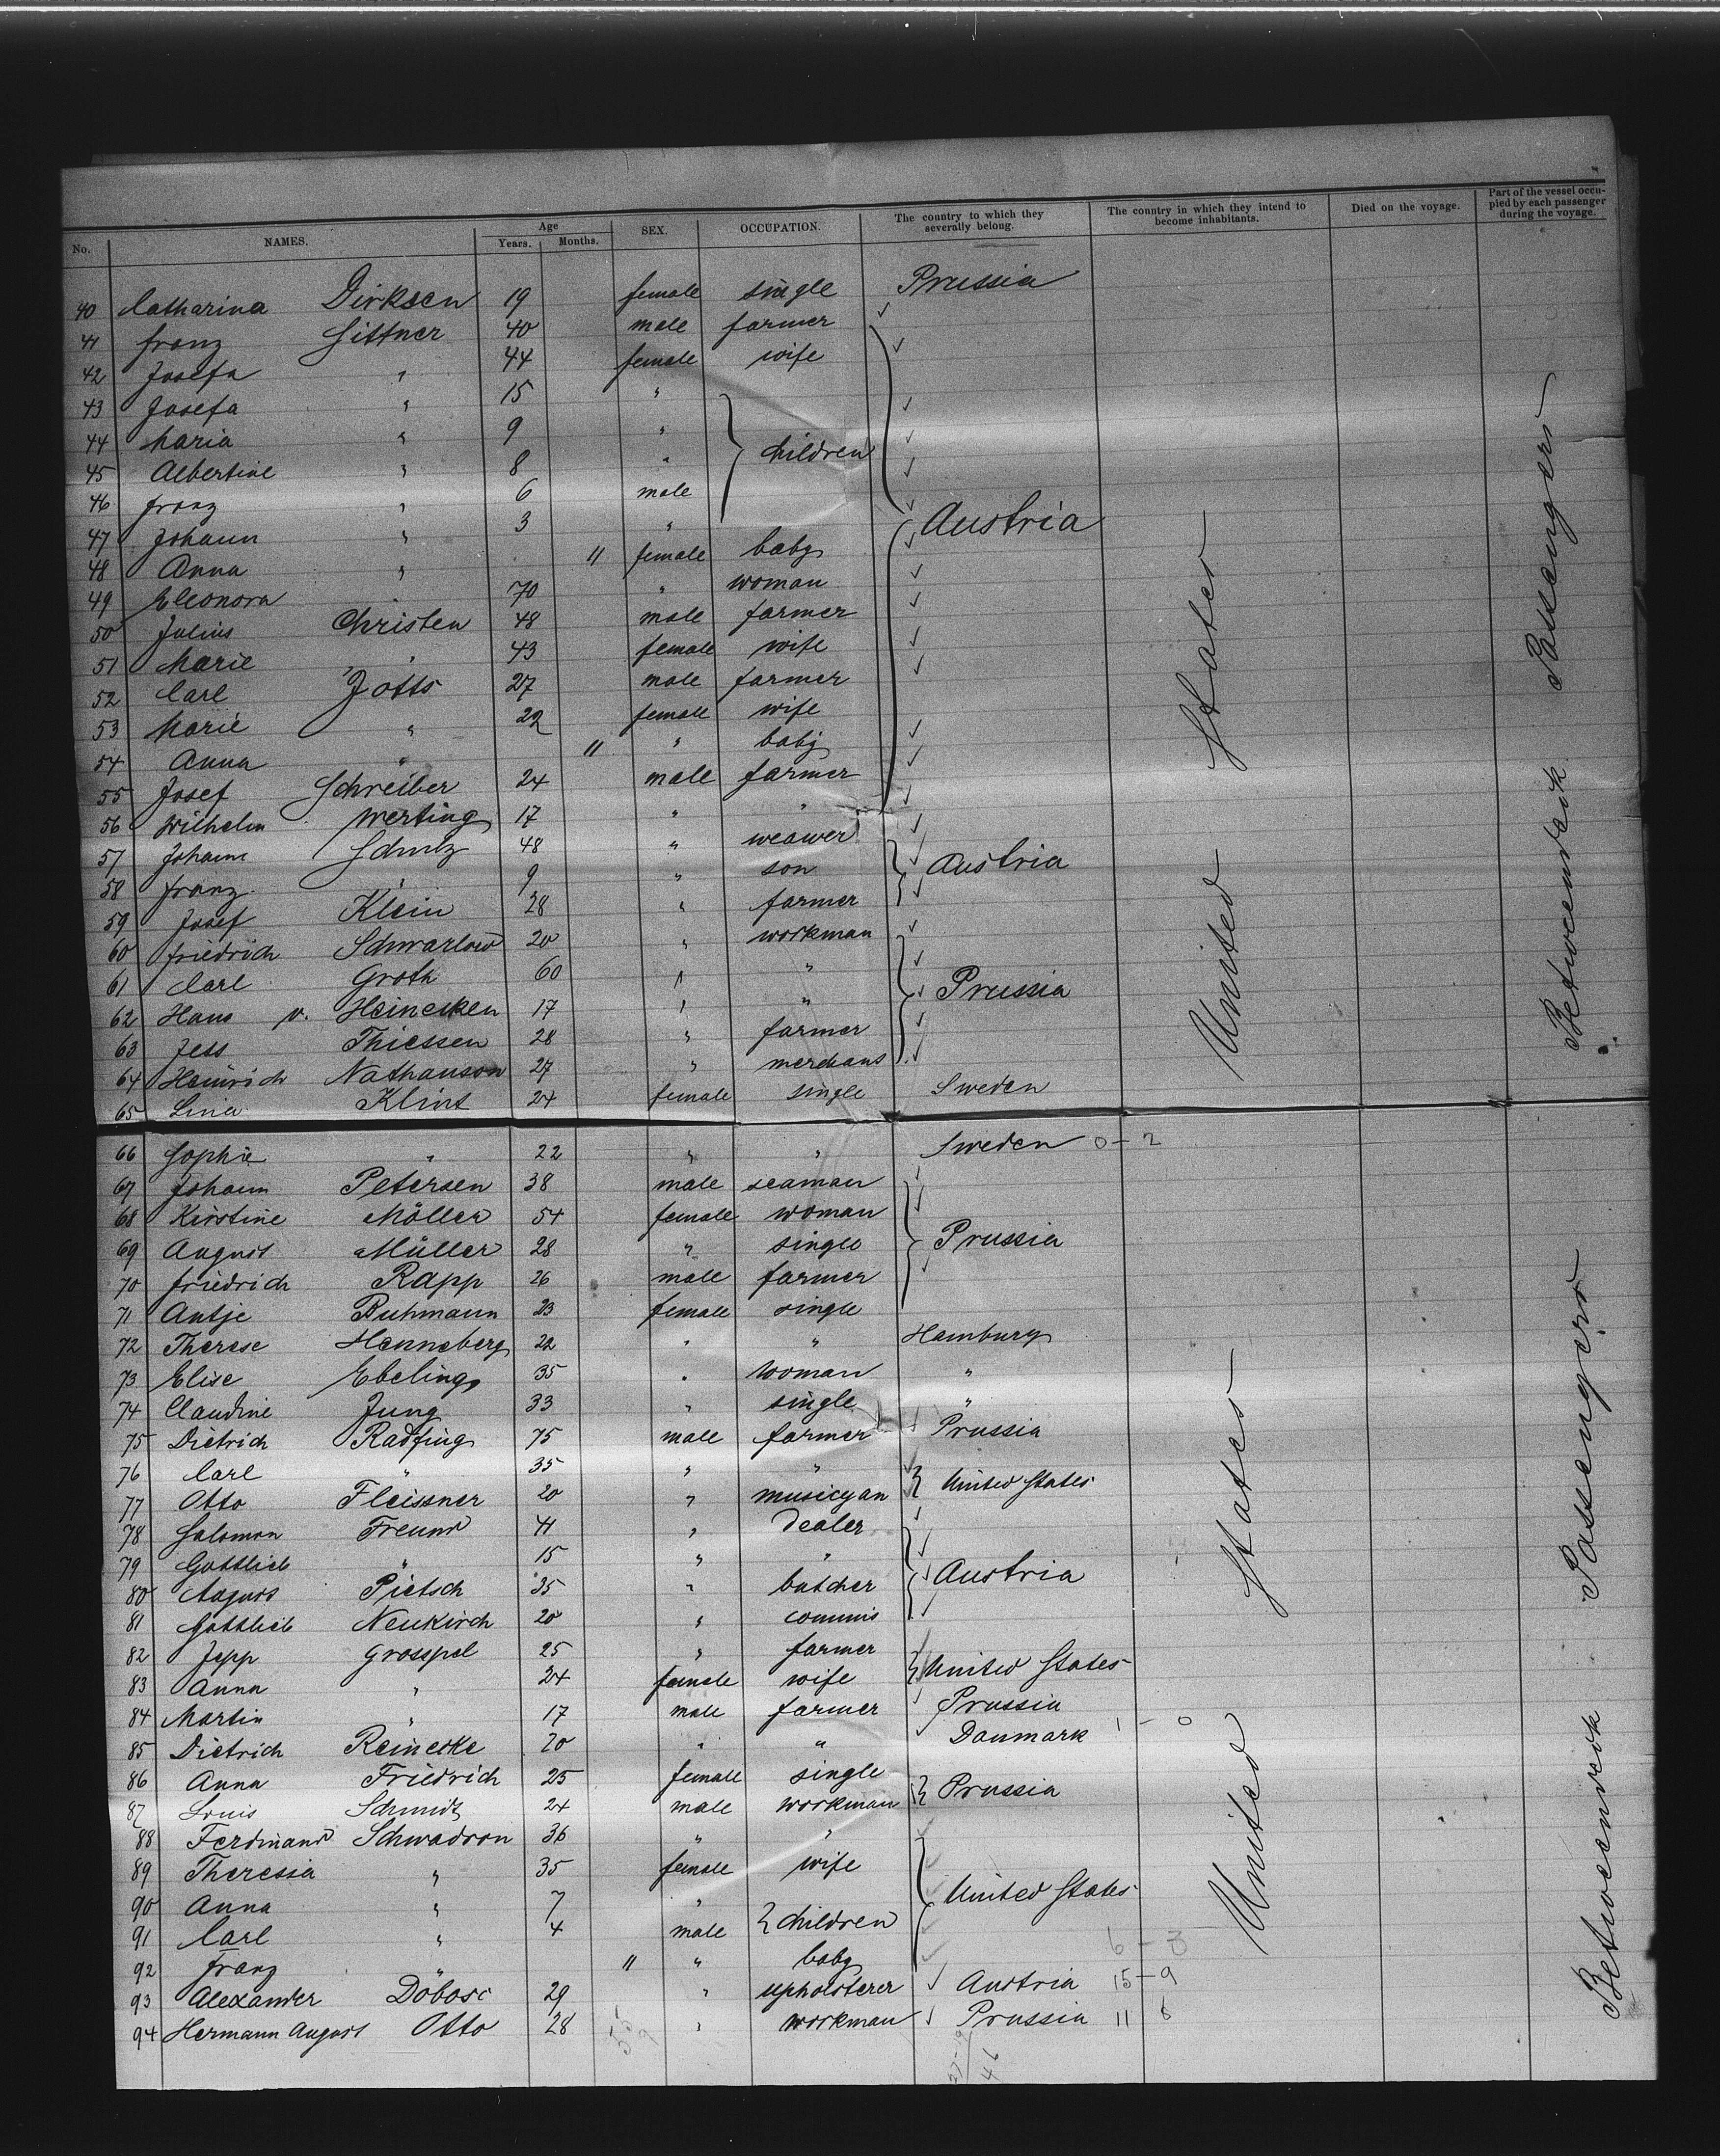 No. NAMES. Age Years. Months. SEX. OCCUPATION. The country to which they severally belong. The country in which they intend to become inhabitants. Died on the voyage. Part of the vessel occupied by each passenger during the voyage.
40 Catharina Dirksen 19 female single Prussia
41 Franz Sittner 40 male farmer
42 Josefa " 44 female wife
43 Josefa " 15 "
44 Maria " 9 " children
45 Albertine " 8 "
46 Franz " 6 male
47 Johann " 3 " Austria
48 Anna " 11 female baby
49 Eleonora " 70 " woman
50 Julius Christen 48 male farmer
51 Marie " 43 female wife
52 Carl Jotts 27 male farmer
53 Marie " 22 female wife
54 Anna " 11 " baby
55 Josef Schreiber 24 male farmer
56 Wilhelm Werting 17 " "
57 Johann Schulz 48 " weawer Austria
58 Franz " 9 " son
59 Josef Klein 28 " farmer
60 Friedrich Schwarlow 20 " workman
61 Carl Groth 60 " " Prussia
62 Hans v. Heinecken 17 " "
63 Jess Thiessen 28 " farmer
64 Heinrich Nathanson 27 " merchant
65 Lina Klint 24 female single Sweden
66 Sophie " 22 " " Sweden 0-2
67 Johann Petersen 38 male seaman
68 Kirstine Möller 54 female woman Prussia
69 August Müller 28 " single
70 Friedrich Rapp 26 male farmer
71 Antje Buhmann 23 female single
72 Therese Henneberg 22 " " Hamburg
73 Elise Ebeling 35 " woman "
74 Claudine Jung 33 " single "
75 Dietrich Radfing 75 male farmer Prussia
76 Carl " 35 " " United States
77 Otto Fleissner 20 " musicyan
78 Salomon Freund 41 " dealer
79 Gottlieb " 15 " " Austria
80 August Pietsch 35 " butcher
81 Gottlieb Neukirch 20 " commis
82 Jepp Grosspel 25 " farmer United States
83 Anna " 24 female wife
84 Martin " 17 male farmer Prussia
85 Dietrich Reinecke 20 " " Danmark 1-0
86 Anna Friedrich 25 female single Prussia
87 Louis Schmidt 24 male workman
88 Ferdinand Schwadron 36 " "
89 Theresia " 35 female wife United States
90 Anna " 7 " children
91 Carl " 4 male
92 Franz " 11 " baby 6-3
93 Alexander Dobosc 29 " upholsterer Austria 15-9
94 Hermann August Otto 28 " workman Prussia 11 6
United States
United States
Betweendeck Passengers
Betweendeck Passengers